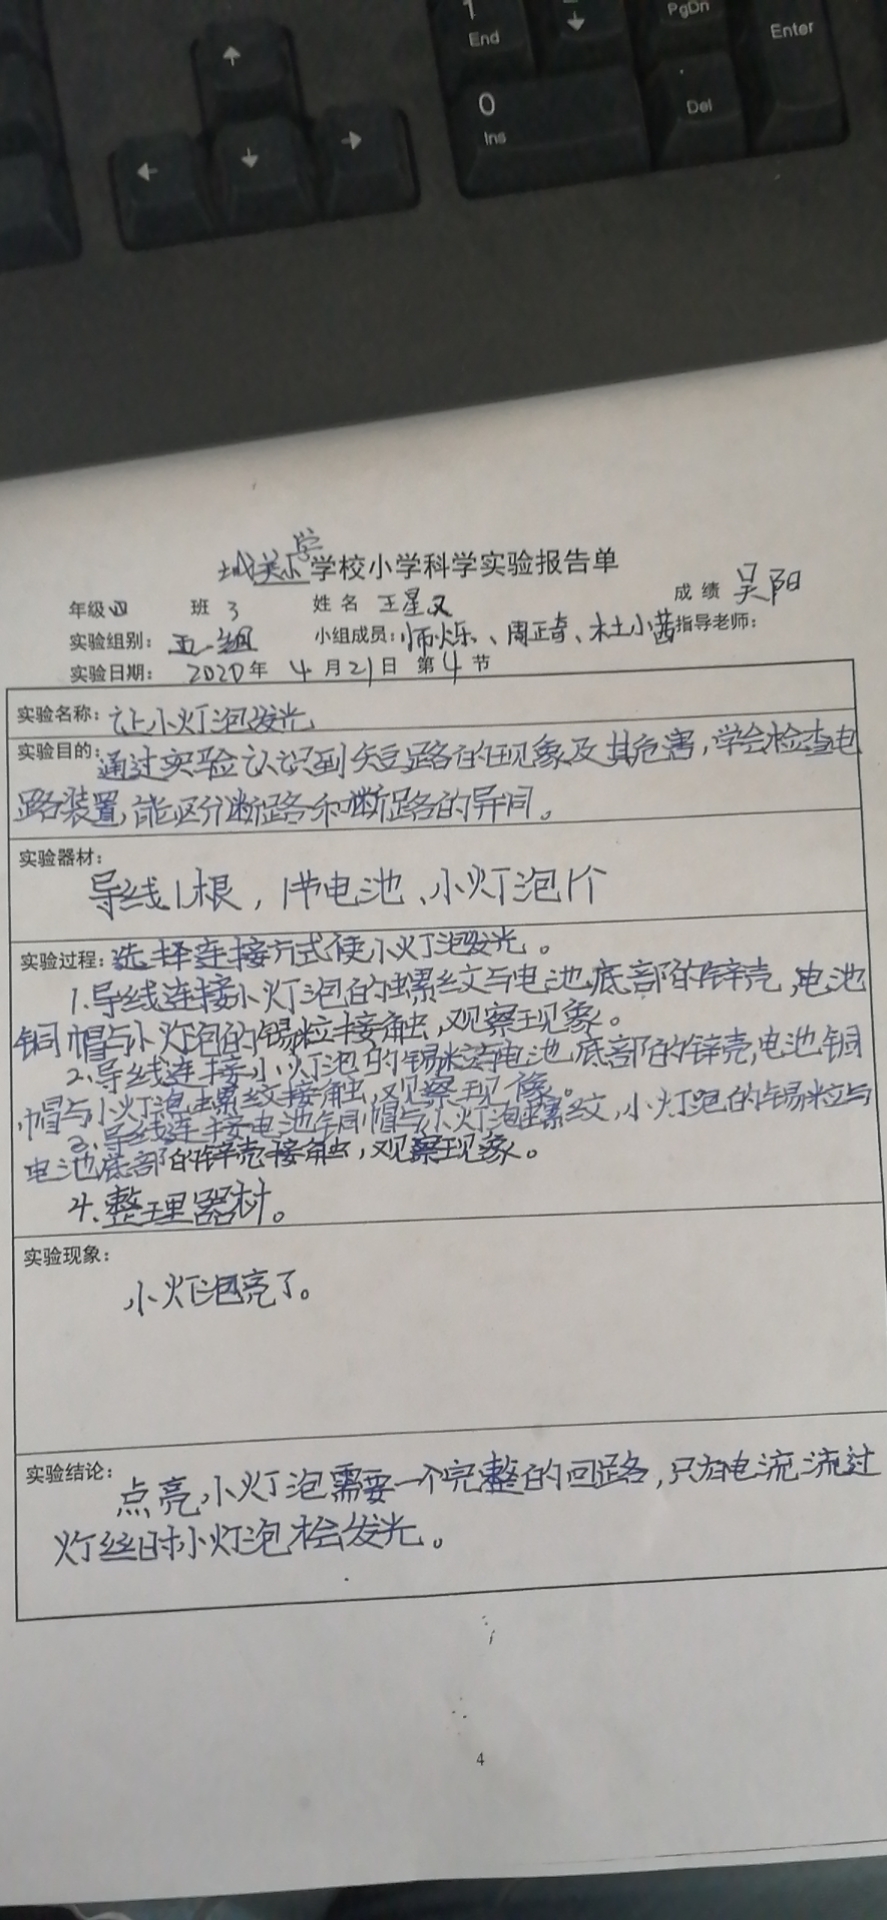 1
End
PgDn
Enter
0
Ins
.
Del
城关小学学校小学科学实验报告单
年级四 班3 姓名 王星又 成绩 吴阳
实验组别: 五组 小组成员:师烁、周正奇、杜小茜 指导老师:
实验日期: 2020年 4月21日 第4节
实验名称:让小灯泡发光
实验目的:通过实验认识到短路的现象及其危害,学会检查电
路装置,能区分断路和断路的异同。
实验器材:
导线1根,1节电池、小灯泡1个
实验过程:选择连接方式使小灯泡发光。
1.导线连接小灯泡的螺纹与电池底部的锌壳,电池
铜帽与小灯泡的锡粒接触,观察现象。
2.导线连接小灯泡的锡粒与电池底部的锌壳,电池铜
帽与小灯泡螺纹接触,观察现像。
3.导线连接电池铜帽与小灯泡螺纹,小灯泡的锡粒与
电池底部的锌壳接触,观察现象。
4.整理器材。
实验现象:
小灯泡亮了。
实验结论:点亮小灯泡需要一个完整的回路,只有电流流过
灯丝时小灯泡才会发光。
4